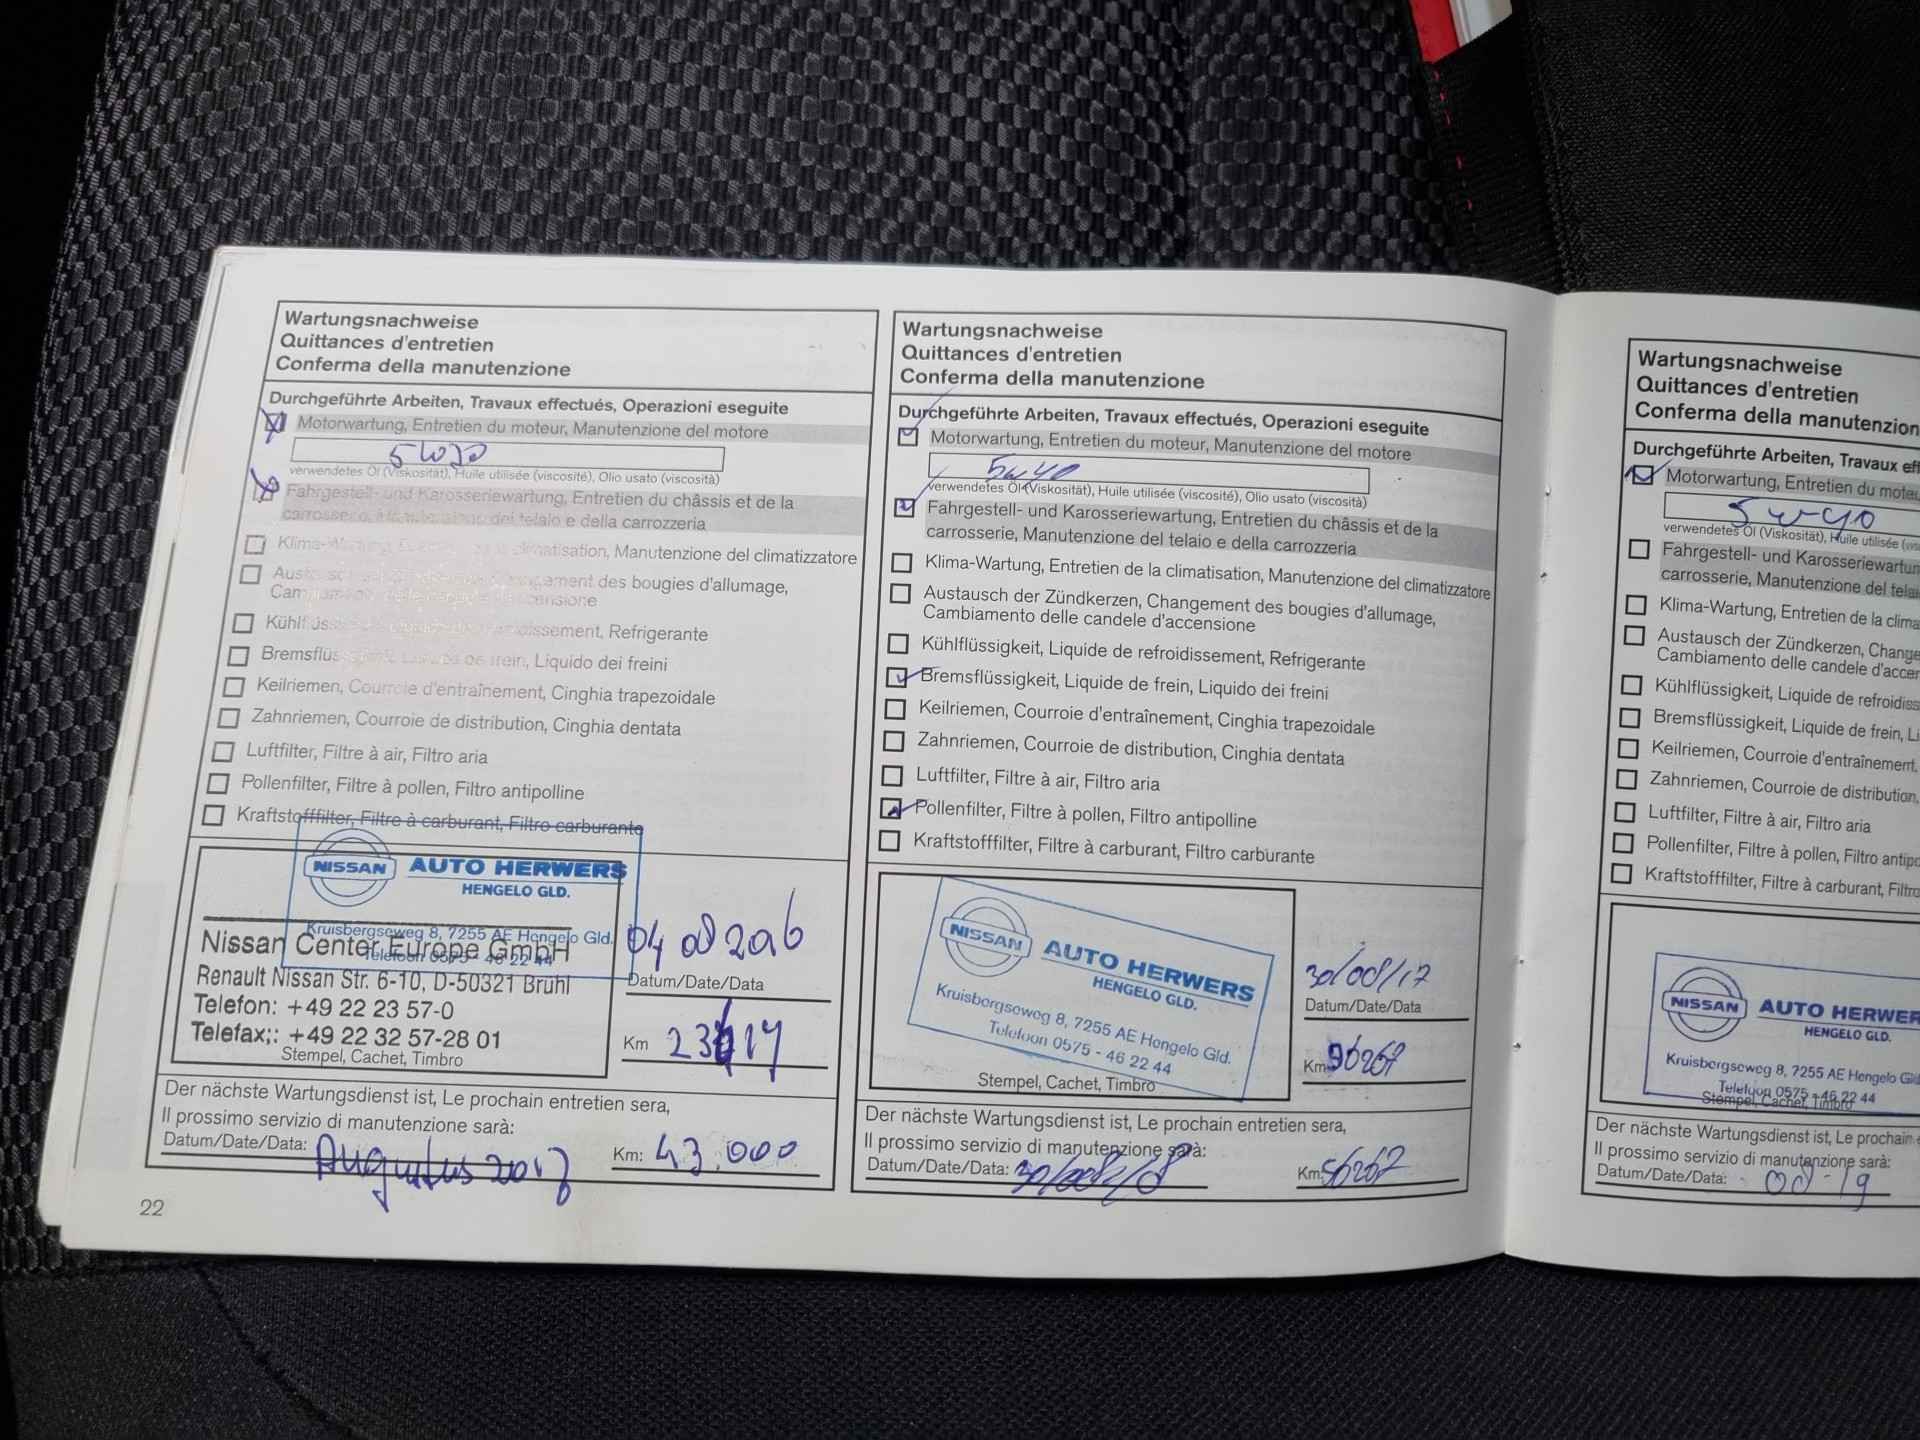 Wartungsnachweise
Quittances d'entretien
Conferma della manutenzione
Durchgeführte Arbeiten, Travaux effectués, Operazioni eseguite
Motorwartung, Entretien du moteur, Manutenzione del motore
verwendetes Öl (Viskosität), Huile utilisée (viscosité), Olio usato (viscosità)
Fahrgestell- und Karosseriewartung, Entretien du châssis et de la
carrosserie, Manutenzione del telaio e della carrozzeria
Klima-Wartung, Entretien de la climatisation, Manutenzione del climatizzatore
Austausch der Zündkerzen, Changement des bougies d'allumage,
Cambiamento delle candele d'accensione
Kühlflüssigkeit, Liquide de refroidissement, Refrigerante
Bremsflüssigkeit, Liquide de frein, Liquido dei freini
Keilriemen, Courroie d'entraînement, Cinghia trapezoidale
Zahnriemen, Courroie de distribution, Cinghia dentata
Luftfilter, Filtre à air, Filtro aria
Pollenfilter, Filtre à pollen, Filtro antipolline
Kraftstofffilter, Filtre à carburant, Filtro carburante
NISSAN AUTO HERWERS
HENGELO GLD.
Kruisbergseweg 8, 7255 AE Hengelo Gld.
Telefoon 0575 - 46 22 44
Nissan Center Europe GmbH
Renault Nissan Str. 6-10, D-50321 Brühl
Telefon: +49 22 23 57-0
Telefax;: +49 22 32 57-28 01
Stempel, Cachet, Timbro
04 08 2016
Datum/Date/Data
Km
Der nächste Wartungsdienst ist, Le prochain entretien sera,
Il prossimo servizio di manutenzione sarà:
Datum/Date/Data: Augustus 2017 Km: 43.000
22
Wartungsnachweise
Quittances d'entretien
Conferma della manutenzione
Durchgeführte Arbeiten, Travaux effectués, Operazioni eseguite
Motorwartung, Entretien du moteur, Manutenzione del motore
5w40
verwendetes Öl (Viskosität), Huile utilisée (viscosité), Olio usato (viscosità)
Fahrgestell- und Karosseriewartung, Entretien du châssis et de la
carrosserie, Manutenzione del telaio e della carrozzeria
Klima-Wartung, Entretien de la climatisation, Manutenzione del climatizzatore
Austausch der Zündkerzen, Changement des bougies d'allumage,
Cambiamento delle candele d'accensione
Kühlflüssigkeit, Liquide de refroidissement, Refrigerante
Bremsflüssigkeit, Liquide de frein, Liquido dei freini
Keilriemen, Courroie d'entraînement, Cinghia trapezoidale
Zahnriemen, Courroie de distribution, Cinghia dentata
Luftfilter, Filtre à air, Filtro aria
Pollenfilter, Filtre à pollen, Filtro antipolline
Kraftstofffilter, Filtre à carburant, Filtro carburante
NISSAN AUTO HERWERS
HENGELO GLD.
Kruisbergseweg 8, 7255 AE Hengelo Gld.
Telefoon 0575 - 46 22 44
Stempel, Cachet, Timbro
30/08/17
Datum/Date/Data
Km
Der nächste Wartungsdienst ist, Le prochain entretien sera,
Il prossimo servizio di manutenzione sarà:
Datum/Date/Data: 30/08/18 Km: 56267
Wartungsnachweise
Quittances d'entretien
Conferma della manutenzion
Durchgeführte Arbeiten, Travaux eff
Motorwartung, Entretien du moteu
5w40
verwendetes Öl (Viskosität), Huile utilisée (vis
Fahrgestell- und Karosseriewartun
carrosserie, Manutenzione del telai
Klima-Wartung, Entretien de la clima
Austausch der Zündkerzen, Change
Cambiamento delle candele d'accer
Kühlflüssigkeit, Liquide de refroidiss
Bremsflüssigkeit, Liquide de frein, Li
Keilriemen, Courroie d'entraînement,
Zahnriemen, Courroie de distribution,
Luftfilter, Filtre à air, Filtro aria
Pollenfilter, Filtre à pollen, Filtro antipo
Kraftstofffilter, Filtre à carburant, Filtro
NISSAN AUTO HERWER
HENGELO GLD.
Kruisbergseweg 8, 7255 AE Hengelo Gld
Telefoon 0575 - 46 22 44
Stempel, Cachet, Timbro
Der nächste Wartungsdienst ist, Le prochain e
Il prossimo servizio di manutenzione sarà:
Datum/Date/Data: 08-19